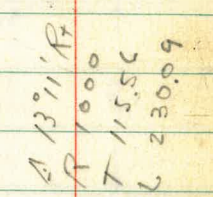 Δ 13°11' Rt
R 1000
T 115.56
L 230.09